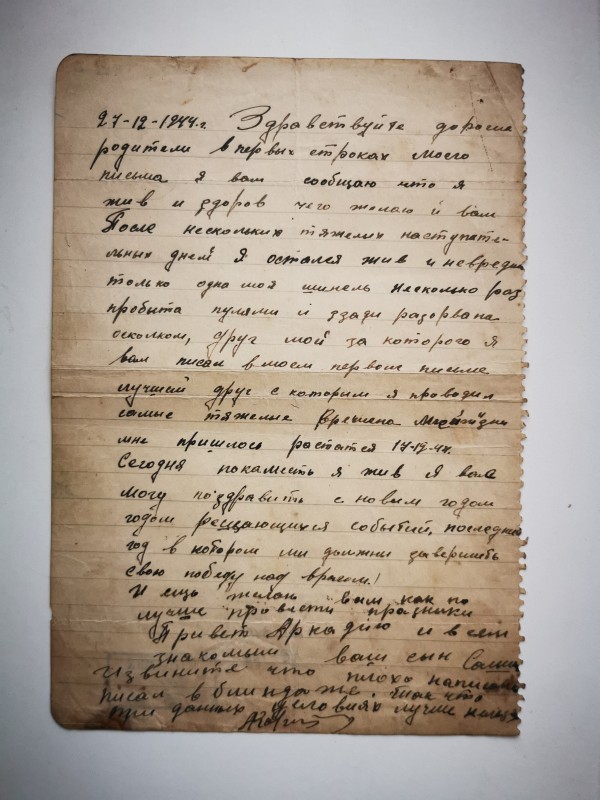 27-12-1944 г. Здравствуйте дорогие
родители в первых строках моего
письма я вам сообщаю что я
жив и здоров чего желаю и вам
После нескольких тяжелых наступате-
льных дней я остался жив и невредим
только одна моя шинель несколько раз
пробита пулями и ззади разорвана
осколком, друг мой за которого я
вам писал в моем первом письме
лучший друг с которим я проводил
самые тяжелые времена
мне пришлось растатся 17-12-44.
Сегодня покамисть я жив я вас
могу поздравить с новым годом
годом решающихся событий, последний
год в котором ми должни завершить
свою победу над врагом!
И ещь желаю вам как по
лучше провести праздники
Привет Аркадию и всем
знакомым ваш сын Саша
Извините что плохо написано
писал в блиндаже, так что
при данных условиях лучше